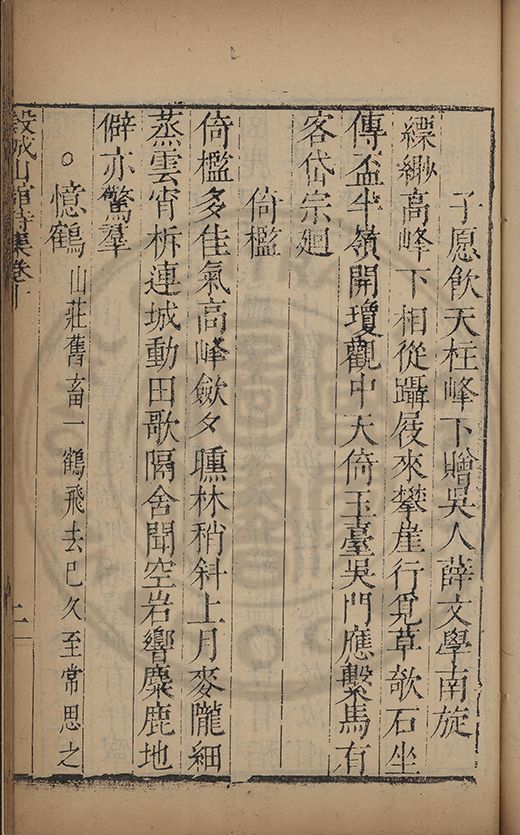 子愿飲天柱峰下贈吳人薛文學南旋
縹緲高峰下相從躡屐來攀崖行覓草欹石坐
傳盃半嶺開瓊觀中天倚玉臺吳門應繫馬有
客岱宗廻
倚檻
倚檻多佳氣高峰歛夕曛林稍斜上月麥隴細
蒸雲宵柝連城動田歌隔舍聞空岩響麋鹿地
僻亦驚羣
。憶鶴山莊舊畜一鶴飛去已久至常思之
糓城山館詩集卷十
二